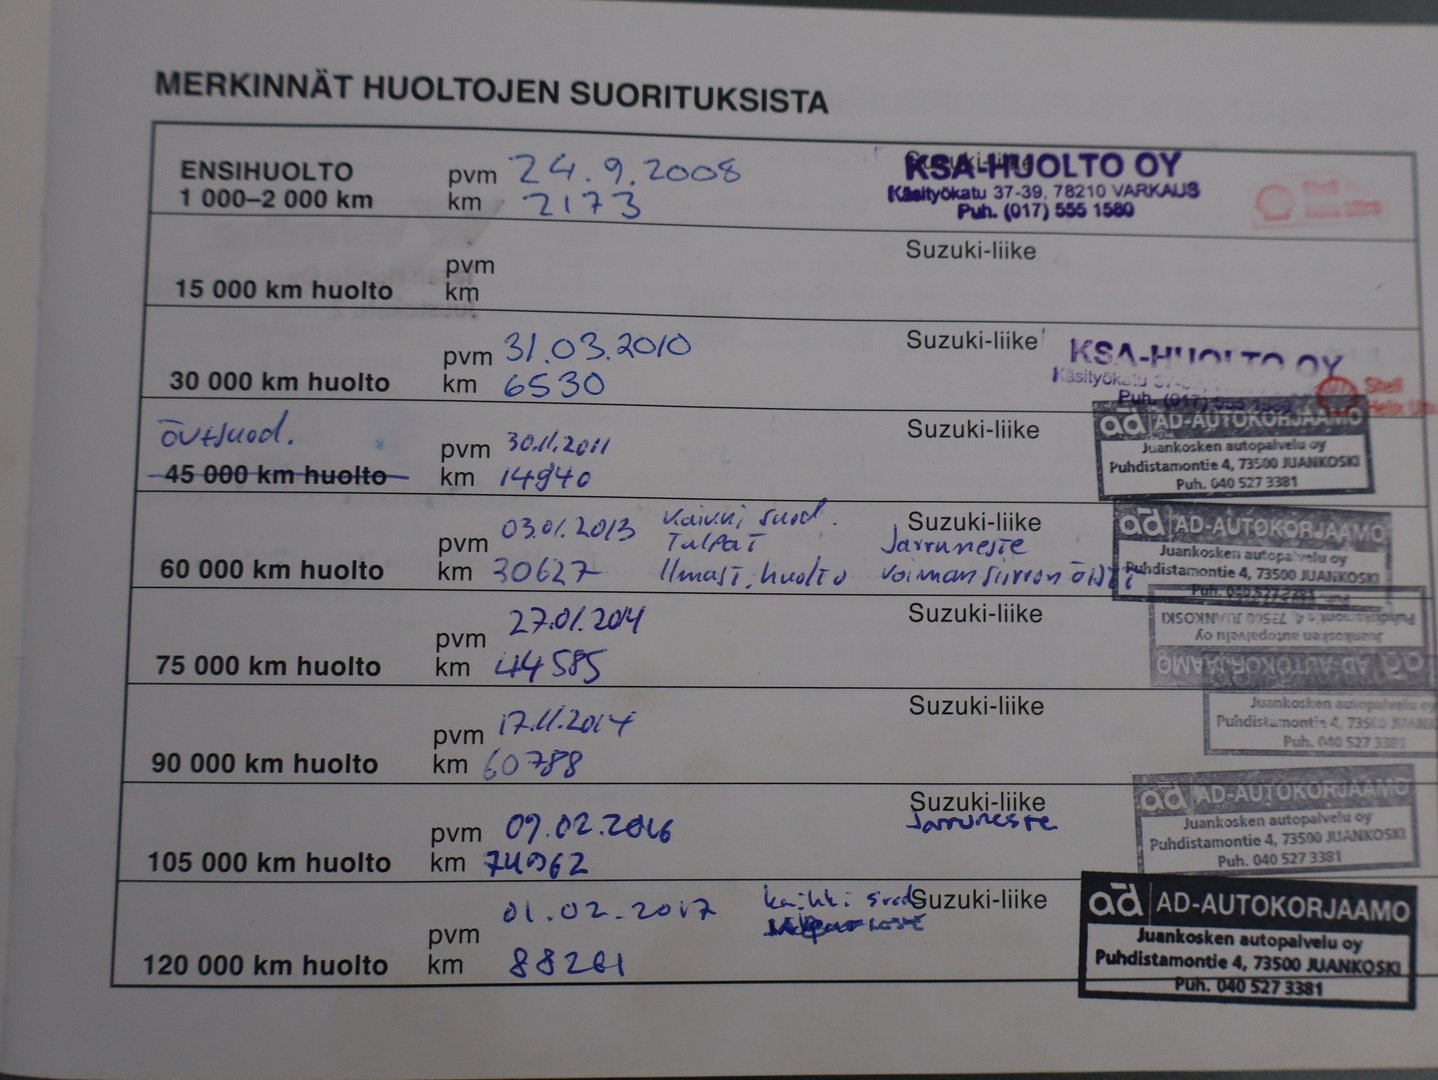 MERKINNÄT HUOLTOJEN SUORITUKSISTA
ENSIHUOLTO
1 000–2 000 km
pvm 24.9.2008
km 2173
Suzuki-liike
KSA-HUOLTO OY
Käsityökatu 37-39, 78210 VARKAUS
Puh. (017) 555 1580
Shell
Helix Ultra
15 000 km huolto
pvm
km
Suzuki-liike
30 000 km huolto
pvm 31.03.2010
km 6530
Suzuki-liike
KSA-HUOLTO OY
Käsityökatu 37-
Puh. (017) 555 1580
Shell
Helix Ultra
öv+suod.
45 000 km huolto
pvm 30.11.2011
km 14940
Suzuki-liike
ad AD-AUTOKORJAAMO
Juankosken autopalvelu oy
Puhdistamontie 4, 73500 JUANKOSKI
Puh. 040 527 3381
60 000 km huolto
pvm 03.01.2013
km 30627
Kaikki suod.
Tulpat
Ilmast. huolto
Suzuki-liike
Jarruneste
Voimansiirron öljyt
ad AD-AUTOKORJAAMO
Juankosken autopalvelu oy
Puhdistamontie 4, 73500 JUANKOSKI
Puh. 040 527 3381
75 000 km huolto
pvm 27.01.2014
km 44585
Suzuki-liike
ad AD-AUTOKORJAAMO
Juankosken autopalvelu oy
Puhdistamontie 4, 73500 JUANKOSKI
90 000 km huolto
pvm 17.11.2014
km 60788
Suzuki-liike
Juankosken autopalvelu oy
Puhdistamontie 4, 73500 JUANK
Puh. 040 527 3381
105 000 km huolto
pvm 09.02.2016
km 74962
Suzuki-liike
Jarruneste
ad AD-AUTOKORJAAMO
Juankosken autopalvelu oy
Puhdistamontie 4, 73500 JUANKOSKI
Puh. 040 527 3381
120 000 km huolto
pvm 01.02.2017
km 88261
kaikki suod
Suzuki-liike
ad AD-AUTOKORJAAMO
Juankosken autopalvelu oy
Puhdistamontie 4, 73500 JUANKOSKI
Puh. 040 527 3381